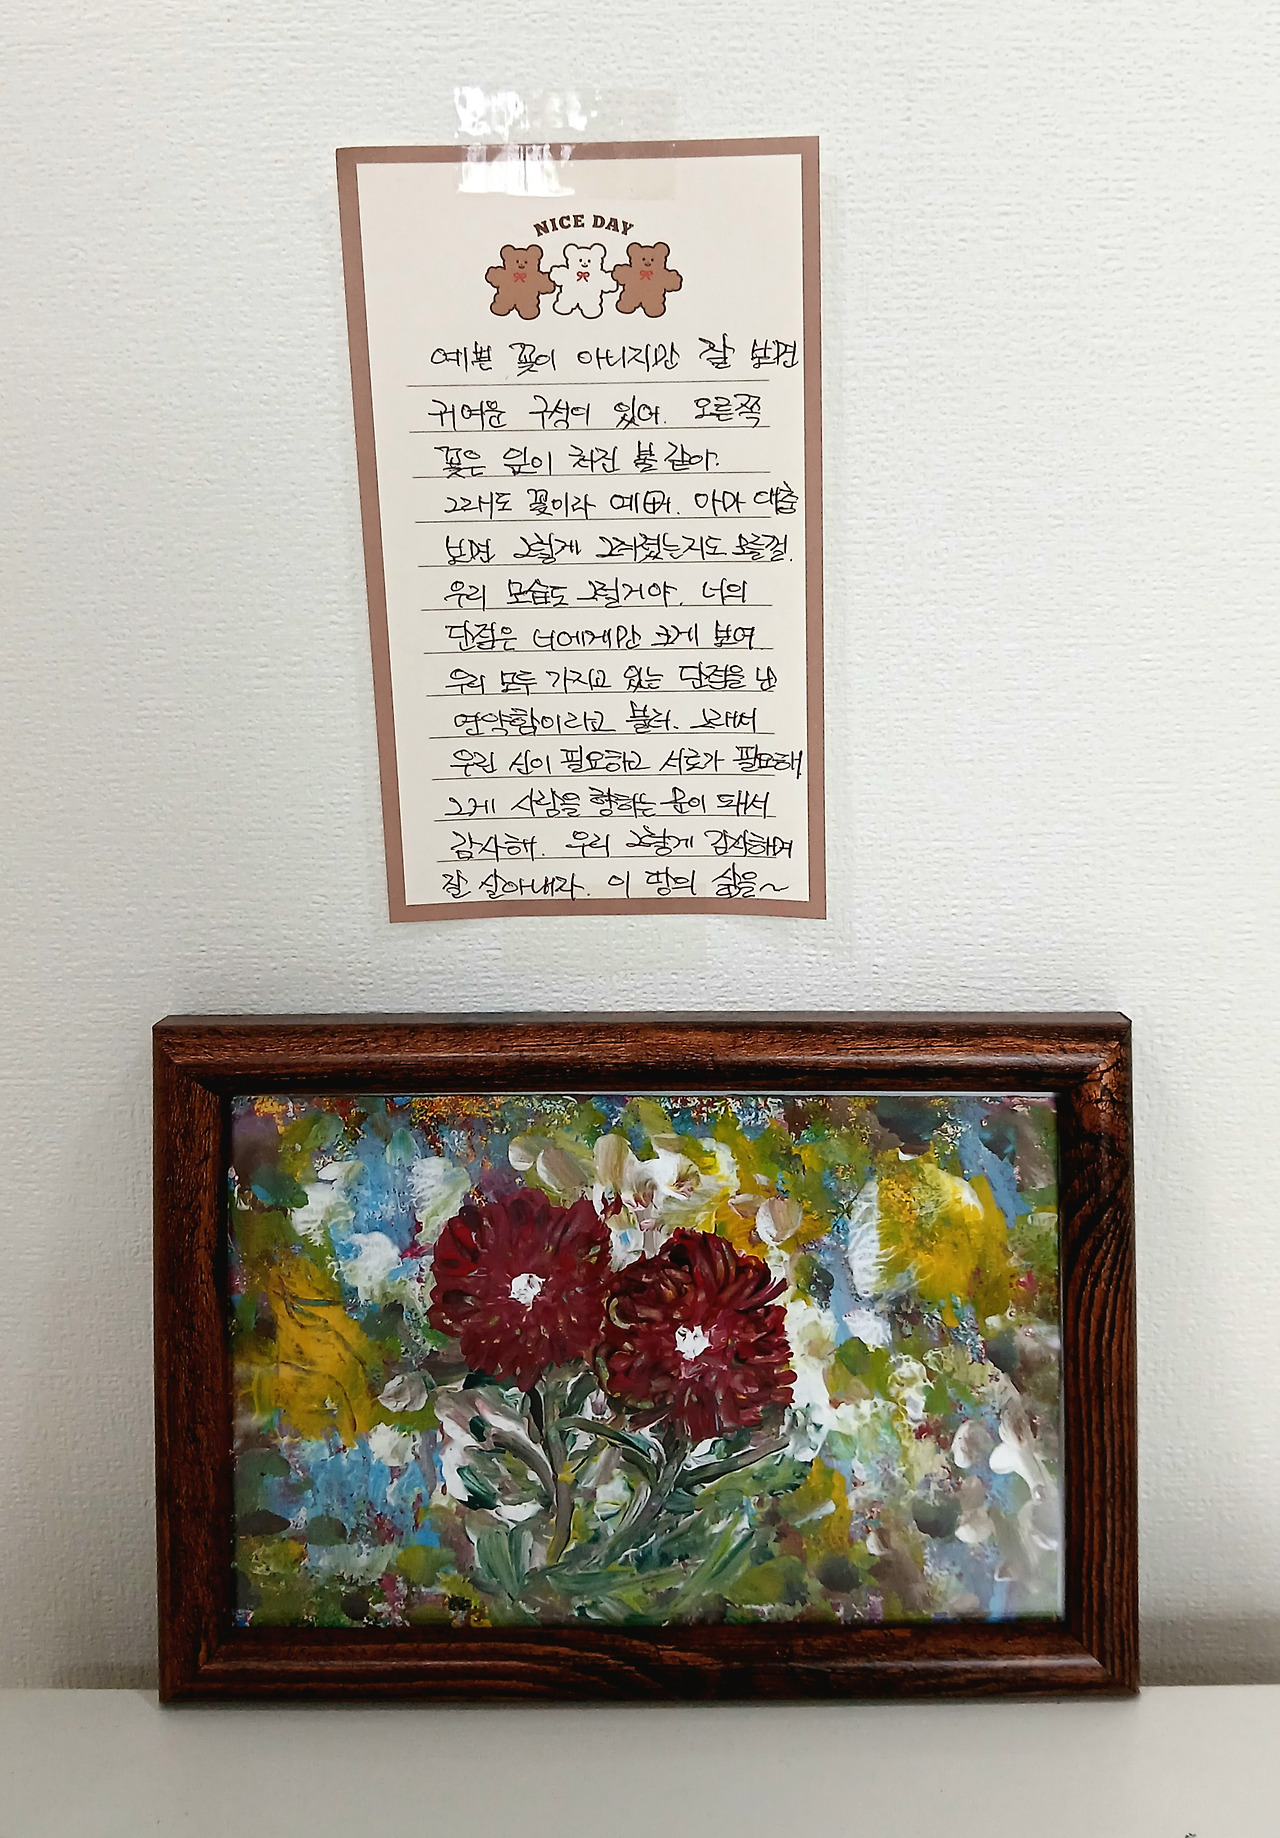 NICE DAY
예쁜 꽃이 아니지만 잘 보면
귀여운 구성이 있어. 오른쪽
꽃은 잎이 처진 볼 같아.
그래도 꽃이라 예뻐. 아마 대충
보면 그렇게 그려졌는지도 모를걸.
우리 모습도 그럴거야. 너의
단점은 너에게만 크게 보여
우리 모두 가지고 있는 단점을 난
연약함이라고 불러. 그래서
우린 신이 필요하고 서로가 필요해
그게 사람을 향하는 문이 돼서
감사해. 우리 그렇게 감사하며
잘 살아내자. 이 땅의 삶을~